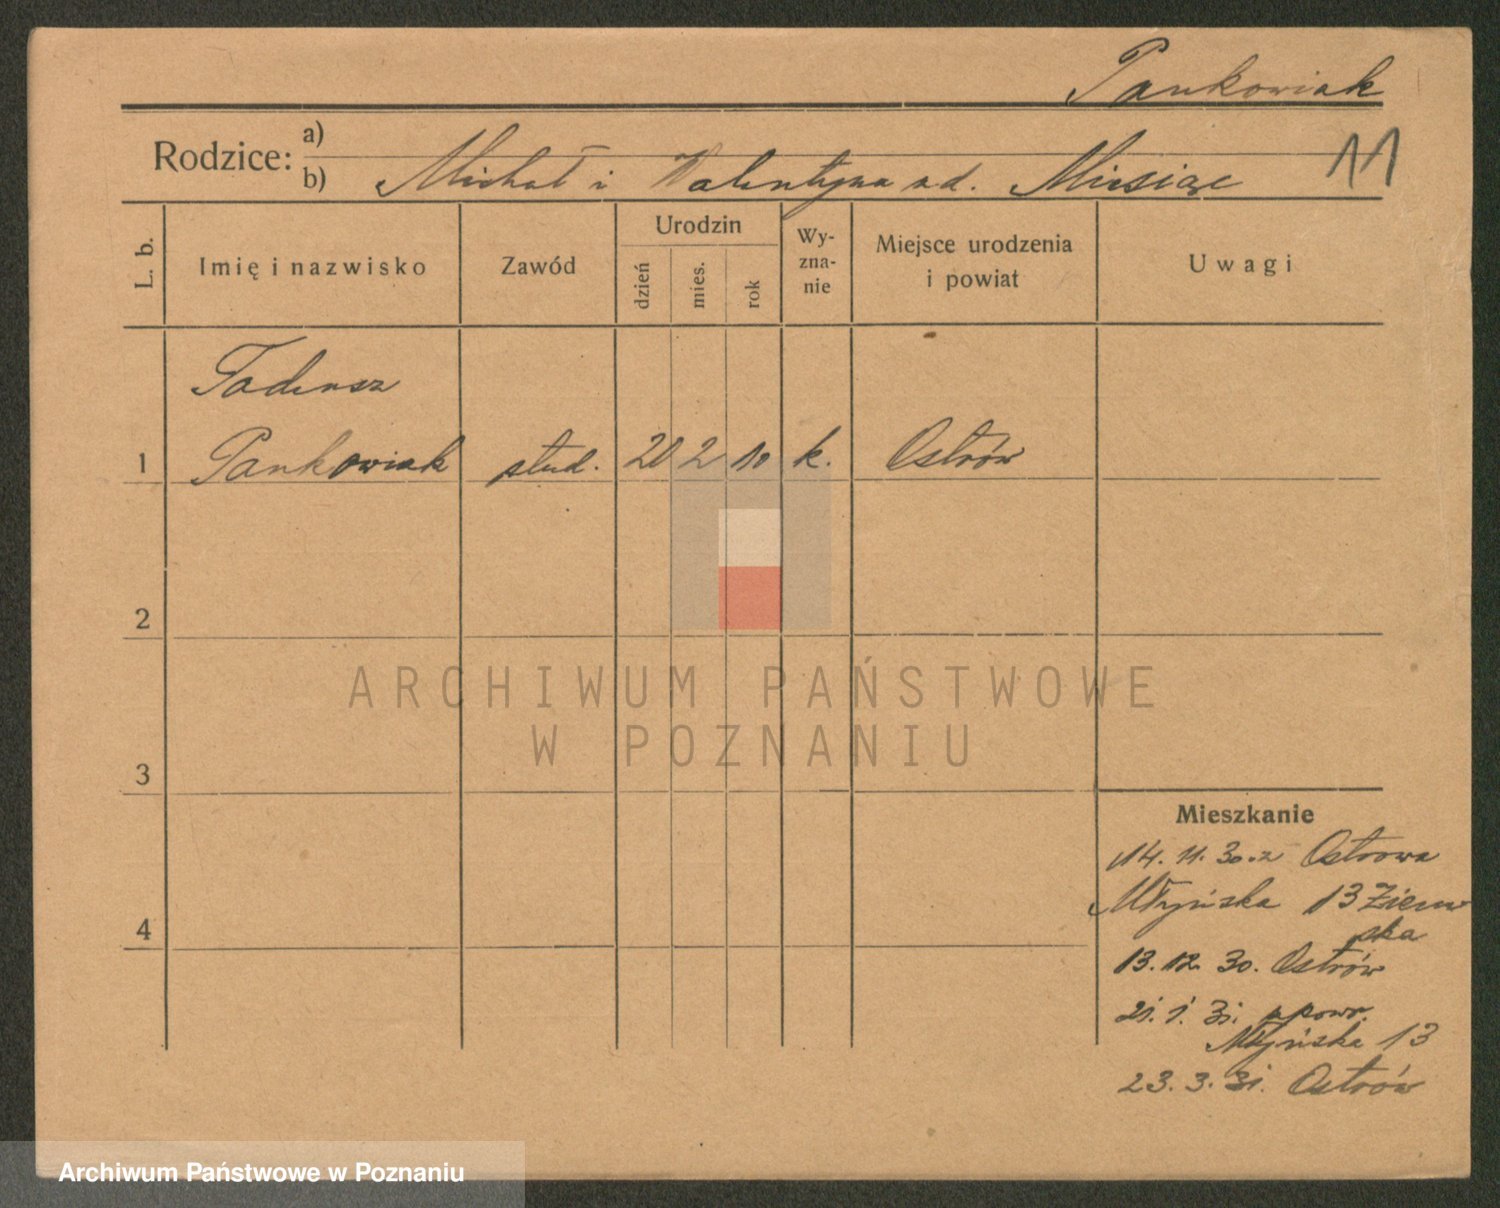 Pankowiak
Rodzice: a)
b) Michał i Walentyna z d. Miesiąc
11
L. b.
Imię i nazwisko
Zawód
Urodzin
dzień
mies.
rok
Wy-
zna-
nie
Miejsce urodzenia
i powiat
Uwagi
Tadeusz
1 Pankowiak stud. 20 2 10 k. Ostrów
2
3
4
ARCHIWUM PAŃSTWOWE
W POZNANIU
Mieszkanie
14. 11. 30. z Ostrowa
Młyńska 13
ska
13. 12. 30. Ostrów
21. 1. 31. z powr.
Młyńska 13
23. 3. 31. Ostrów
Archiwum Państwowe w Poznaniu